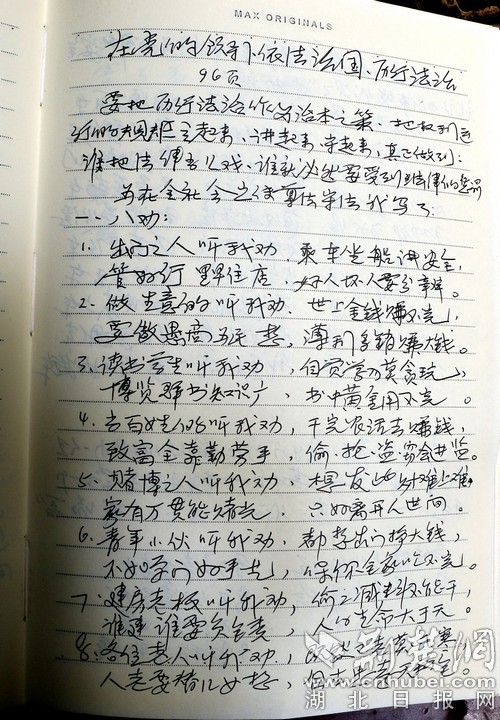 MAX ORIGINALS
在党的领导下依法治国、厉行法治
96页
要把厉行法治作为治本之策,把权利运
行的规矩立起来、讲起来、守起来,真正做到:
谁把法律当儿戏、谁就必然要受到法律的惩罚
为在全社会之 守法我写了:
一、八劝:
1. 出门之人听我劝,乘车坐船讲安全,
管好行李住店,好人坏人要分辨。
2. 做生意的听我劝,世上金钱赚不完,
要做愚高 想,薄利多销赚大钱。
3. 读书学生听我劝,自觉学习莫贪玩,
博览群书知识广,书中黄金用不完。
4. 当百姓的听我劝,干完农活去赚钱,
致富全靠勤劳手,偷、抢、盗窃会进监。
5. 赌博之人听我劝,想发此财难上难,
家有万贯能赌完,只好离开人世间。
6. 青年小伙听我劝,都想出门挣大钱,
不如学门好手艺,保你全家吃不完。
7. 建房老板听我劝,偷工减料不能干,
谁建谁要负全责,人的生命大于天。
8. 各位老人听我劝,
人老要替儿女想,
荆楚网
www.cnhubei.com
湖北日报网